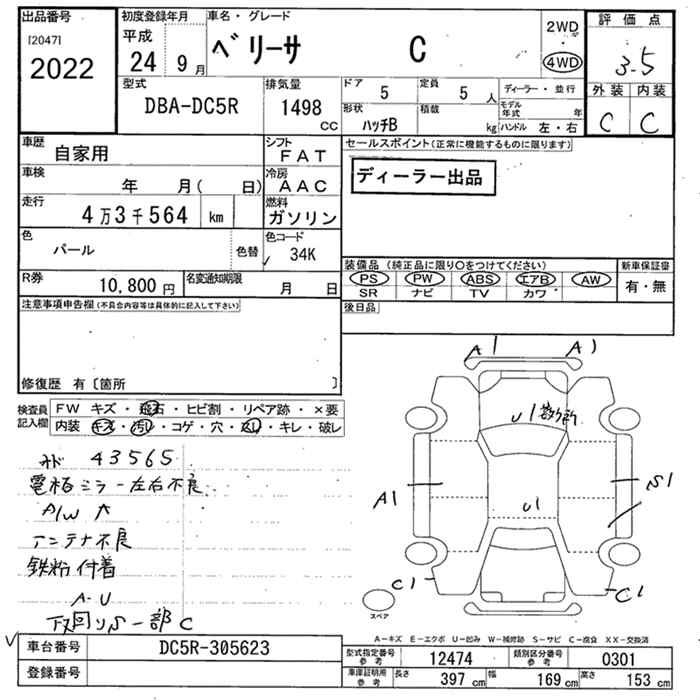 出品番号
[2047]
2022
初度登録年月
平成
24 9月
車名・グレード
ベリーサ C
2WD
・
4WD
評価点
3.5
外装 内装
C C
型式
DBA-DC5R
排気量
1498
CC
ドア
5
定員
5 人
形状
ハッチB
積載
kg
ディーラー・並行
モデル年式 年
ハンドル 左・右
車歴
自家用
シフト
FAT
車検
年 月( 日)
冷房
AAC
走行
4万3千564 km
燃料
ガソリン
色
パール
色替
色コード
34K
R券
10,800円
名変通知期限
月 日
セールスポイント(正常に機能するものに限ります)
ディーラー出品
装備品 (純正品に限り○をつけてください)
PS PW ABS エアB AW
SR ナビ TV カワ
新車保証書
有・無
後日品
注意事項申告欄(不具合内容等は具体的に記入して下さい)
修復歴 有〔箇所 〕
検査員記入欄
FW キズ・飛石・ヒビ割・リペア跡・×要
内装 キズ・汚レ・コゲ・穴・スレ・キレ・破レ
43565
電格ミラー左右不良
A/W
アンテナ不良
鉄粉付着
A・U
下回りS 一部C
A1 A1
U1
U1
A1
S1
C1
C1
スペア
A-キズ E-エクボ U-凹み W-補修跡 S-サビ C-腐食 XX-交換済
車台番号
DC5R-305623
登録番号
型式指定番号 参考
12474
類別区分番号 参考
0301
車庫証明用 参考
長さ 397 cm 幅 169 cm 高さ 153 cm